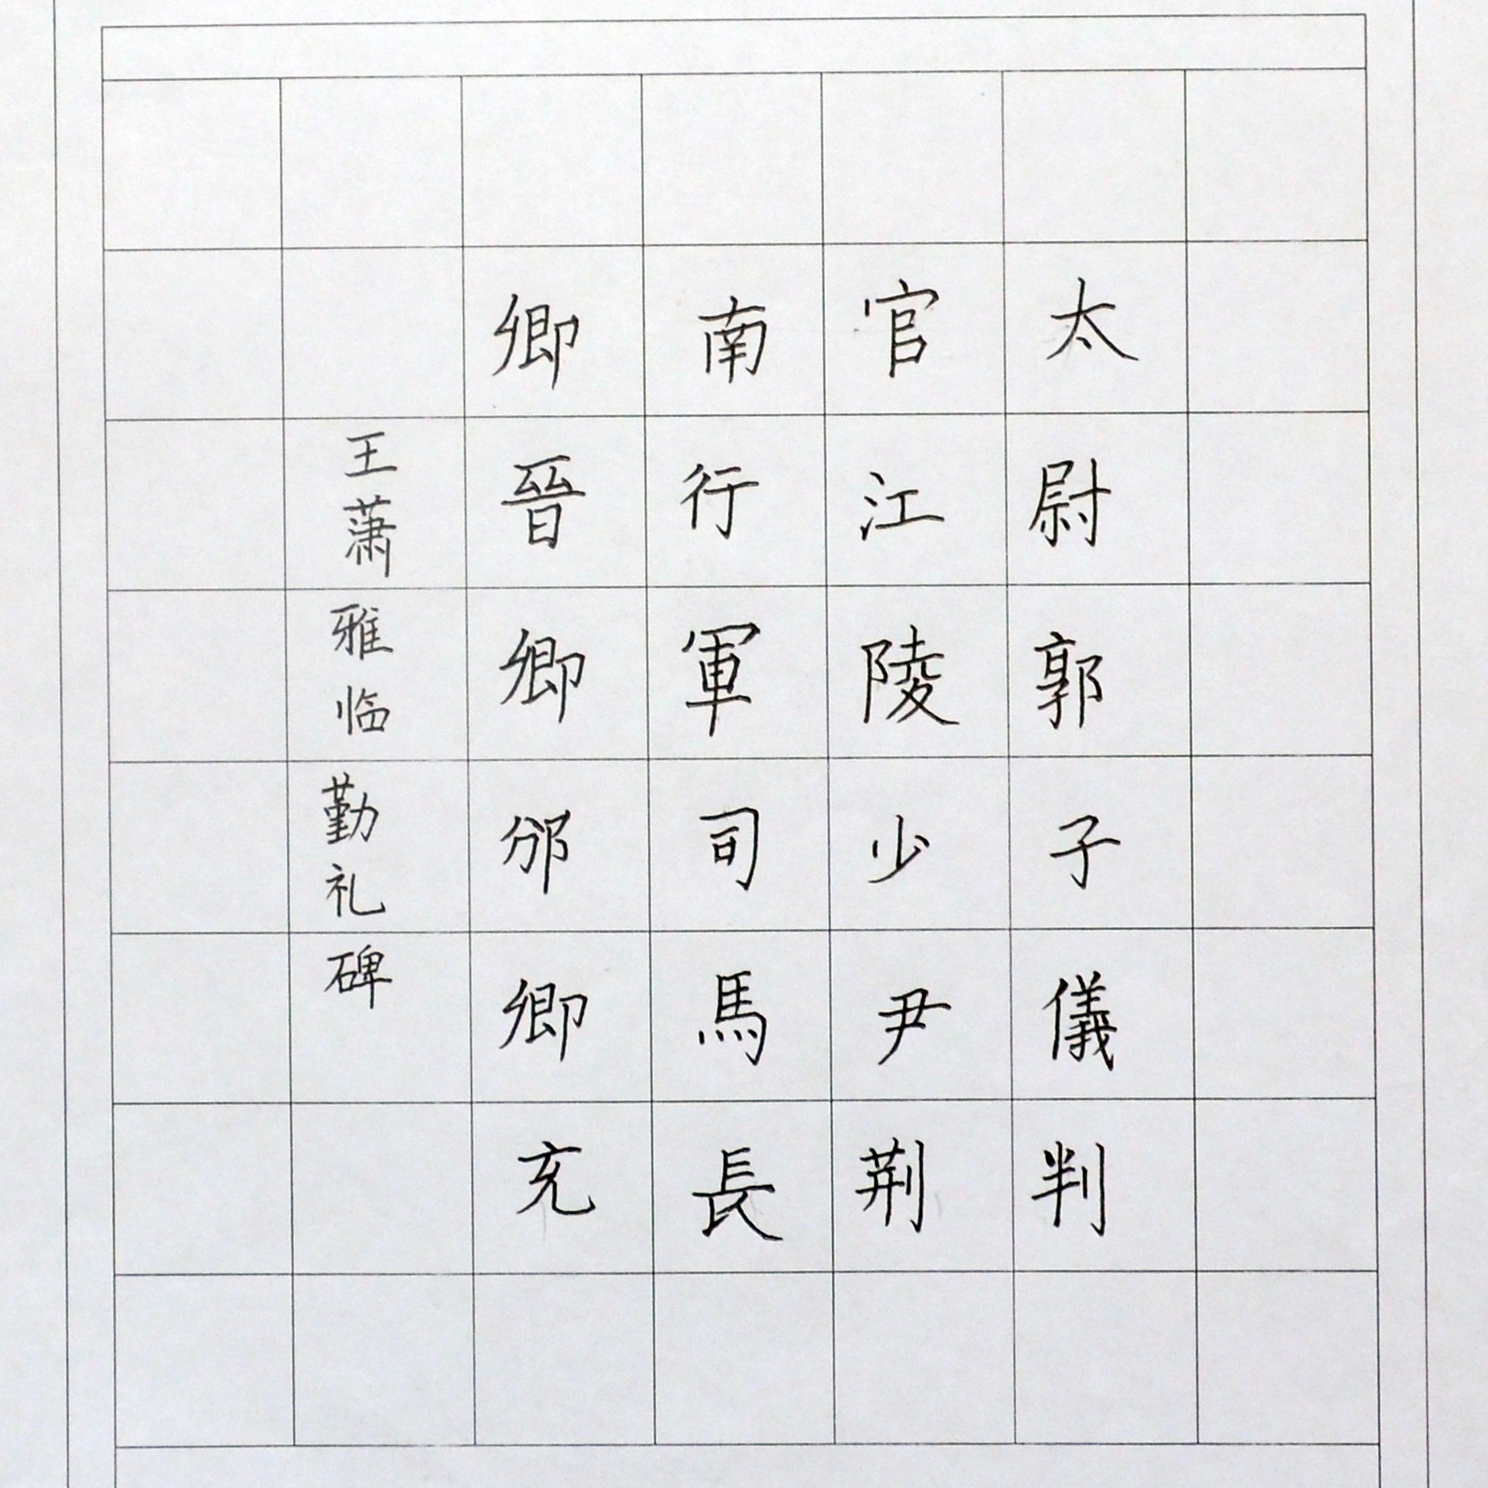 太尉郭子儀判
官江陵少尹荆
南行軍司馬長
卿晉卿邠卿充
王萧雅临勤礼碑